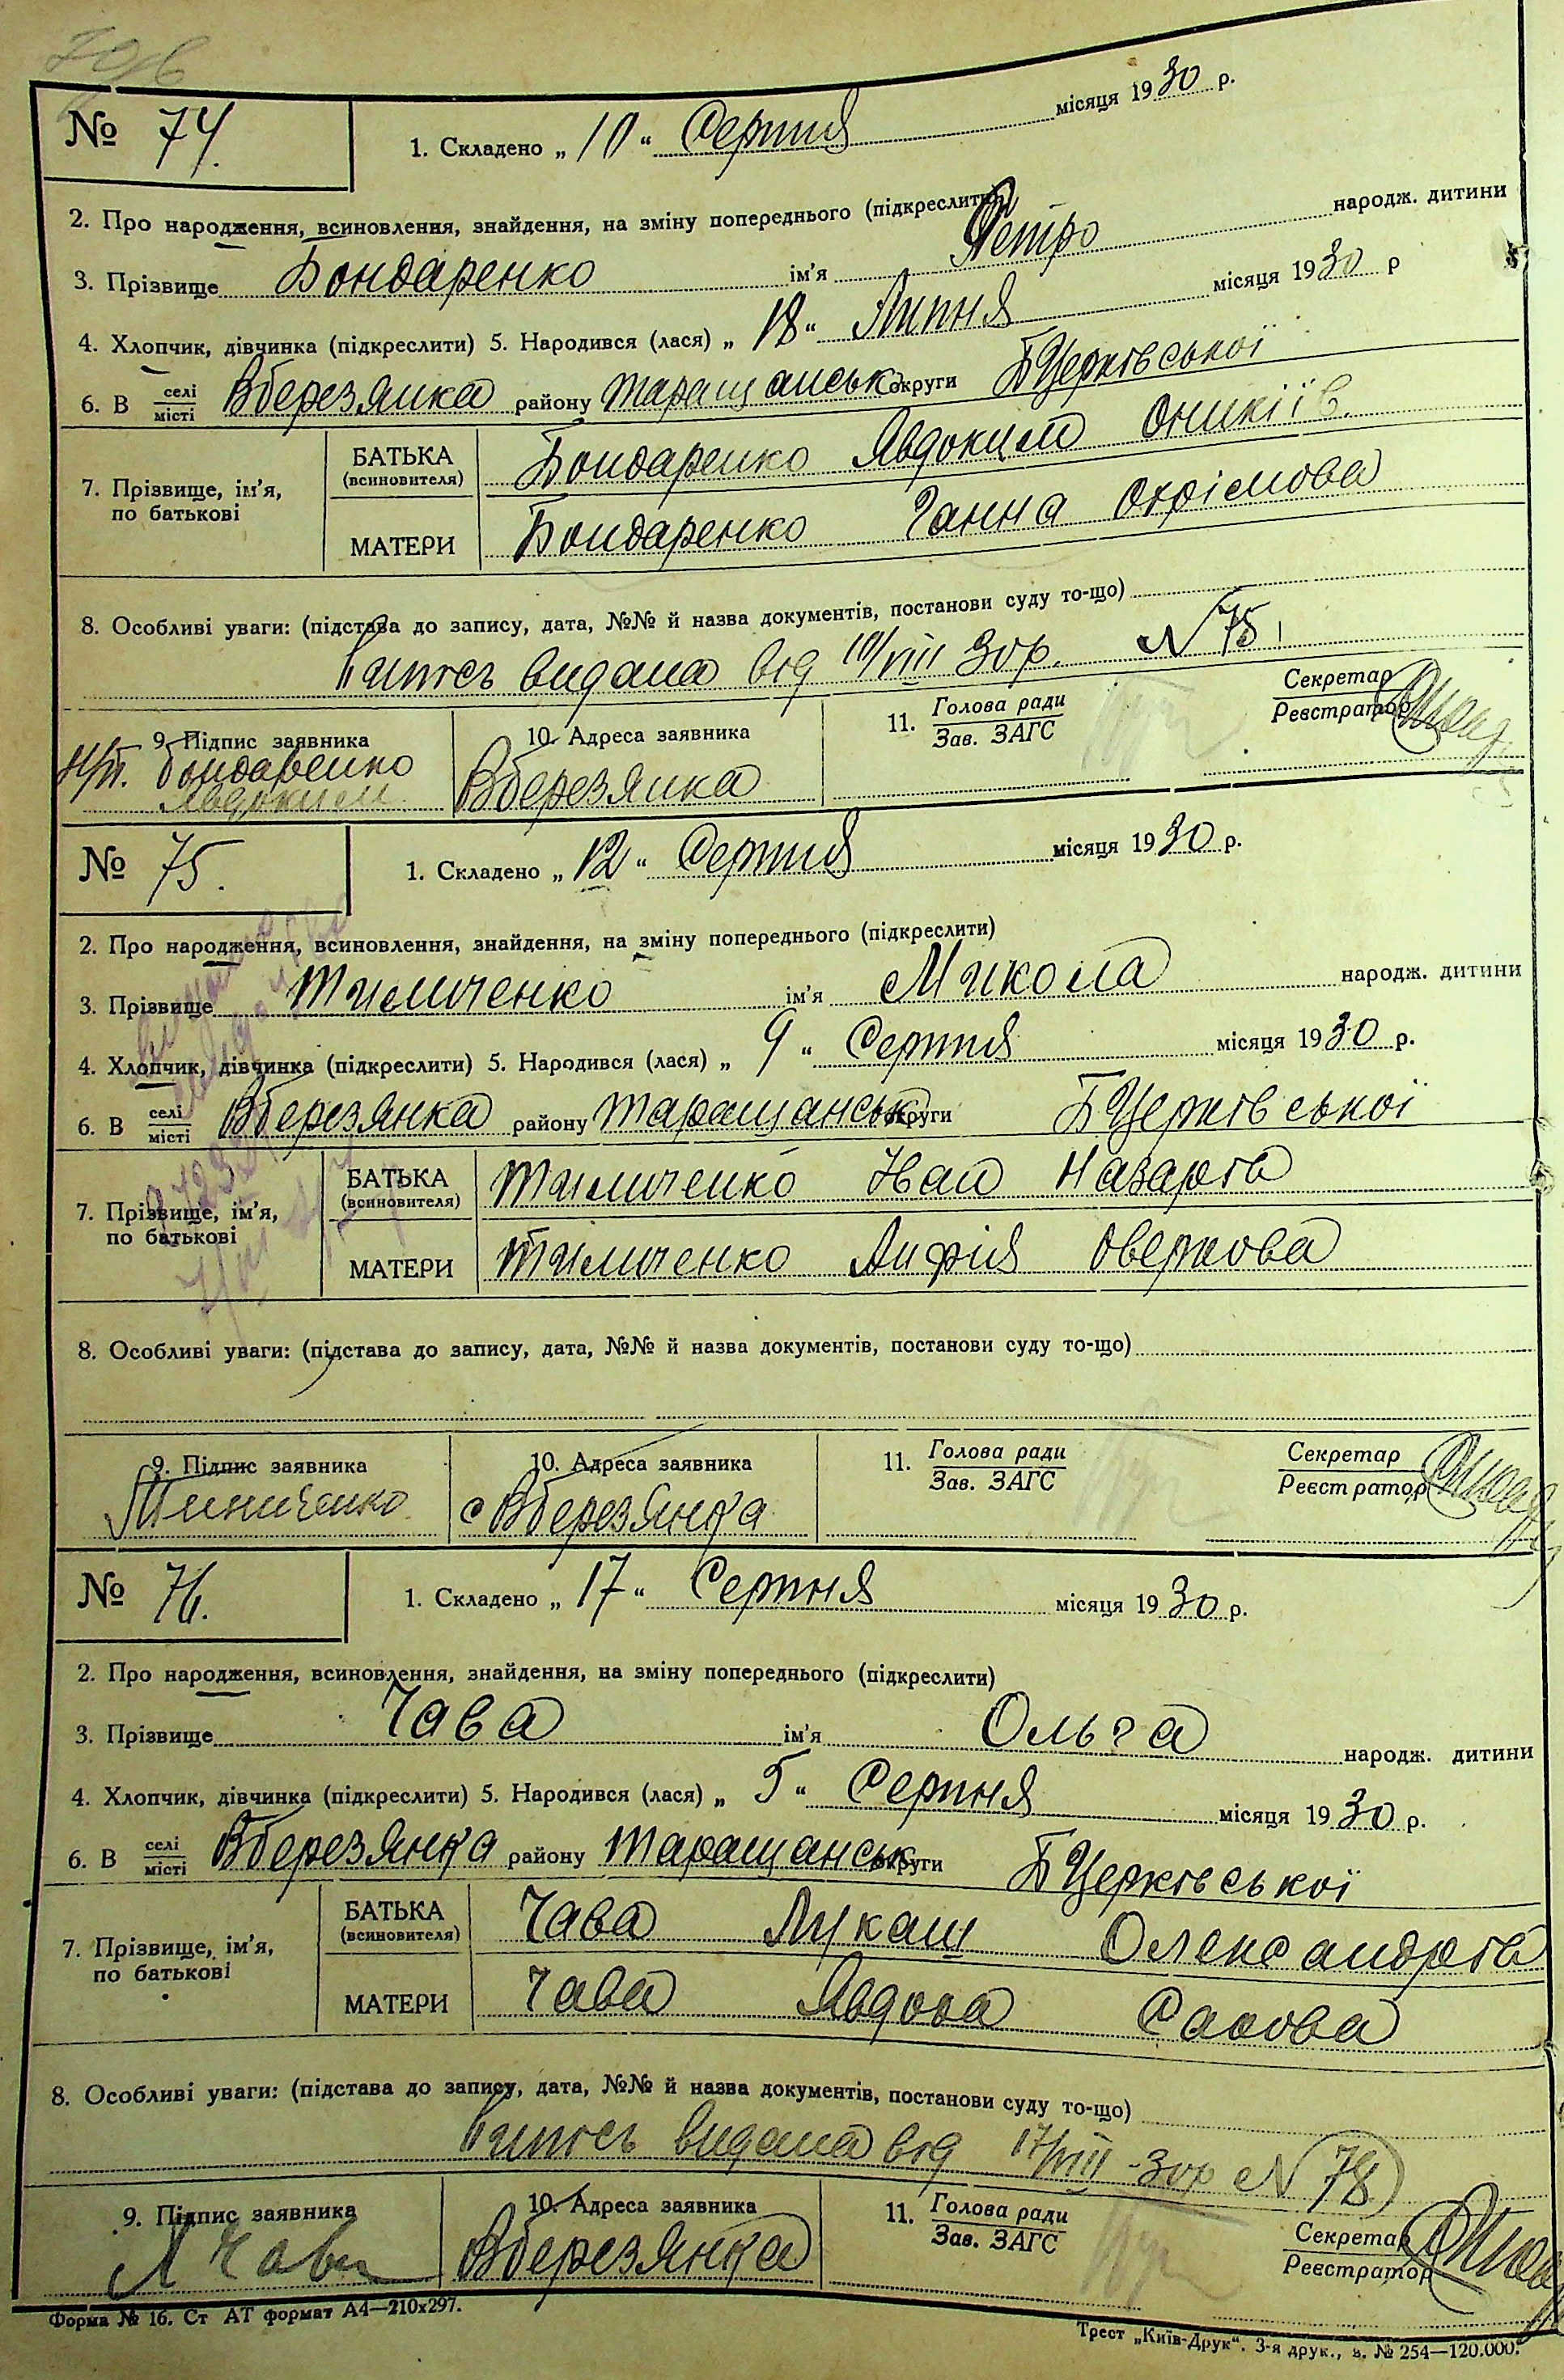 № 74. 1. Складено „10“ Серпня місяця 1930 р.
2. Про народження, всиновлення, знайдення, на зміну попереднього (підкреслити)
3. Прізвище Бондаренко ім'я Петро народж. дитини
4. Хлопчик, дівчинка (підкреслити) 5. Народився (лася) „18“ Липня місяця 1930 р
6. В селі/місті Вберезянка району Таращанськ округи БЦерківської
7. Прізвище, ім'я, по батькові
БАТЬКА (всиновителя) Бондаренко Явдоким Оникіїв.
МАТЕРИ Бондаренко Ганна Охрімова
8. Особливі уваги: (підстава до запису, дата, №№ й назва документів, постанови суду то-що)
видана від 10/VIII 30р. N 75
9. Підпис заявника 10. Адреса заявника 11. Голова ради/Зав. ЗАГС Секретар/Реєстратор
Бондаренко Вберезянка
Явдоким
№ 75. 1. Складено „12“ Серпня місяця 1930 р.
2. Про народження, всиновлення, знайдення, на зміну попереднього (підкреслити)
3. Прізвище Тимченко ім'я Микола народж. дитини
4. Хлопчик, дівчинка (підкреслити) 5. Народився (лася) „9“ Серпня місяця 1930 р.
6. В селі/місті Вберезянка району Таращанськ округи БЦерківської
7. Прізвище, ім'я, по батькові
БАТЬКА (всиновителя) Тимченко Іван Назарів
МАТЕРИ Тимченко Оверкова
8. Особливі уваги: (підстава до запису, дата, №№ й назва документів, постанови суду то-що)
9. Підпис заявника 10. Адреса заявника 11. Голова ради/Зав. ЗАГС Секретар/Реєстратор
с Вберезянка
№ 76. 1. Складено „17“ Серпня місяця 1930 р.
2. Про народження, всиновлення, знайдення, на зміну попереднього (підкреслити)
3. Прізвище Чава ім'я Ольга народж. дитини
4. Хлопчик, дівчинка (підкреслити) 5. Народився (лася) „5“ Серпня місяця 1930 р.
6. В селі/місті Вберезянка району Таращанськ округи БЦерківської
7. Прізвище, ім'я, по батькові
БАТЬКА (всиновителя) Чава Лукаш Олександрів
МАТЕРИ Чава Явдоха Савова
8. Особливі уваги: (підстава до запису, дата, №№ й назва документів, постанови суду то-що)
видана від 17/VIII-30р N 78
9. Підпис заявника 10. Адреса заявника 11. Голова ради/Зав. ЗАГС Секретар/Реєстратор
Л Чава Вберезянка
Форма № 16. Ст АТ формат А4—210х297.
Трест „Київ-Друк“. 3-я друк., з. № 254—120.000.